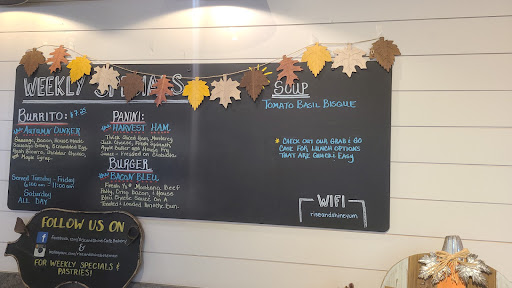 WEEKLY SPECIALS
BURRITO: $7.25
AUTUMN OINKER
Sausage, Bacon, House Made
Sausage Gravy, 2 Scrambled Eggs
Hash Browns, Cheddar Cheese,
w/ Maple Syrup.
Served Tuesday - Friday
6:00 am - 11:00 am
Saturday
ALL DAY
PANINI:
HARVEST HAM
Thick Sliced Ham, Monterey
Jack Cheese, Fresh Spinach,
Apple Butter
Pressed on Ciabatta
BURGER
BACON BLEU
Fresh Montana Beef
Patty, Crisp Bacon & House
Bleu Cheese Sauce on A
Toasted & Loaded Brioche Bun.
SOUP
TOMATO BASIL BISQUE
* CHECK OUT OUR GRAB & GO
CASE FOR LUNCH OPTIONS
THAT ARE QUICK & EASY
WIFI
riseandshine
FOLLOW US ON
&
FOR WEEKLY SPECIALS &
PASTRIES!